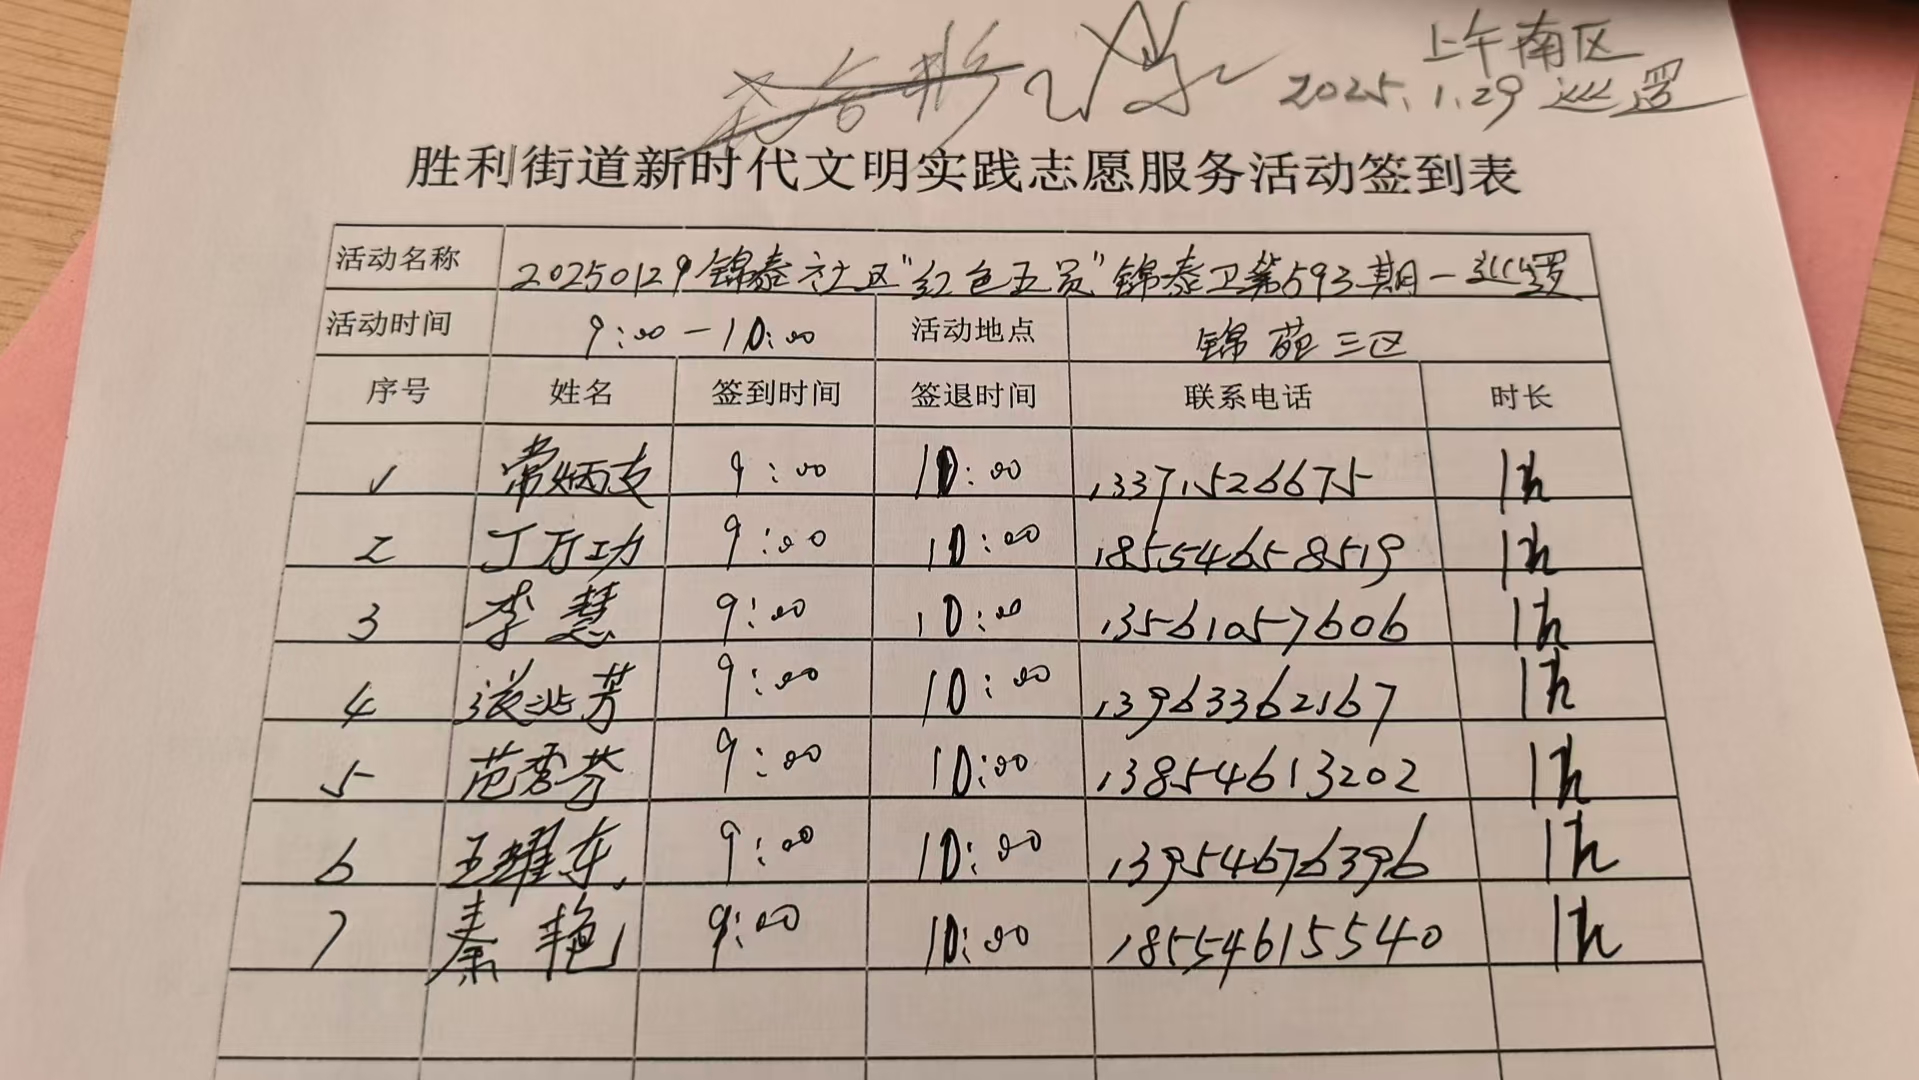 上午南区
2025.1.29 巡逻
胜利街道新时代文明实践志愿服务活动签到表
活动名称 20250129锦泰社区"红色五员"锦泰卫第593期一巡逻
活动时间 9:00-10:00 活动地点 锦苑三区
序号 姓名 签到时间 签退时间 联系电话 时长
1 常炳支 9:00 10:00 13371526675 1h
2 丁万功 9:00 10:00 18554658519 1h
3 李慧 9:00 10:00 13561057606 1h
4 芳 9:00 10:00 13963362167 1h
5 范秀芬 9:00 10:00 13854613202 1h
6 王耀东 9:00 10:00 13954676396 1h
7 秦艳 9:00 10:00 18554615540 1h